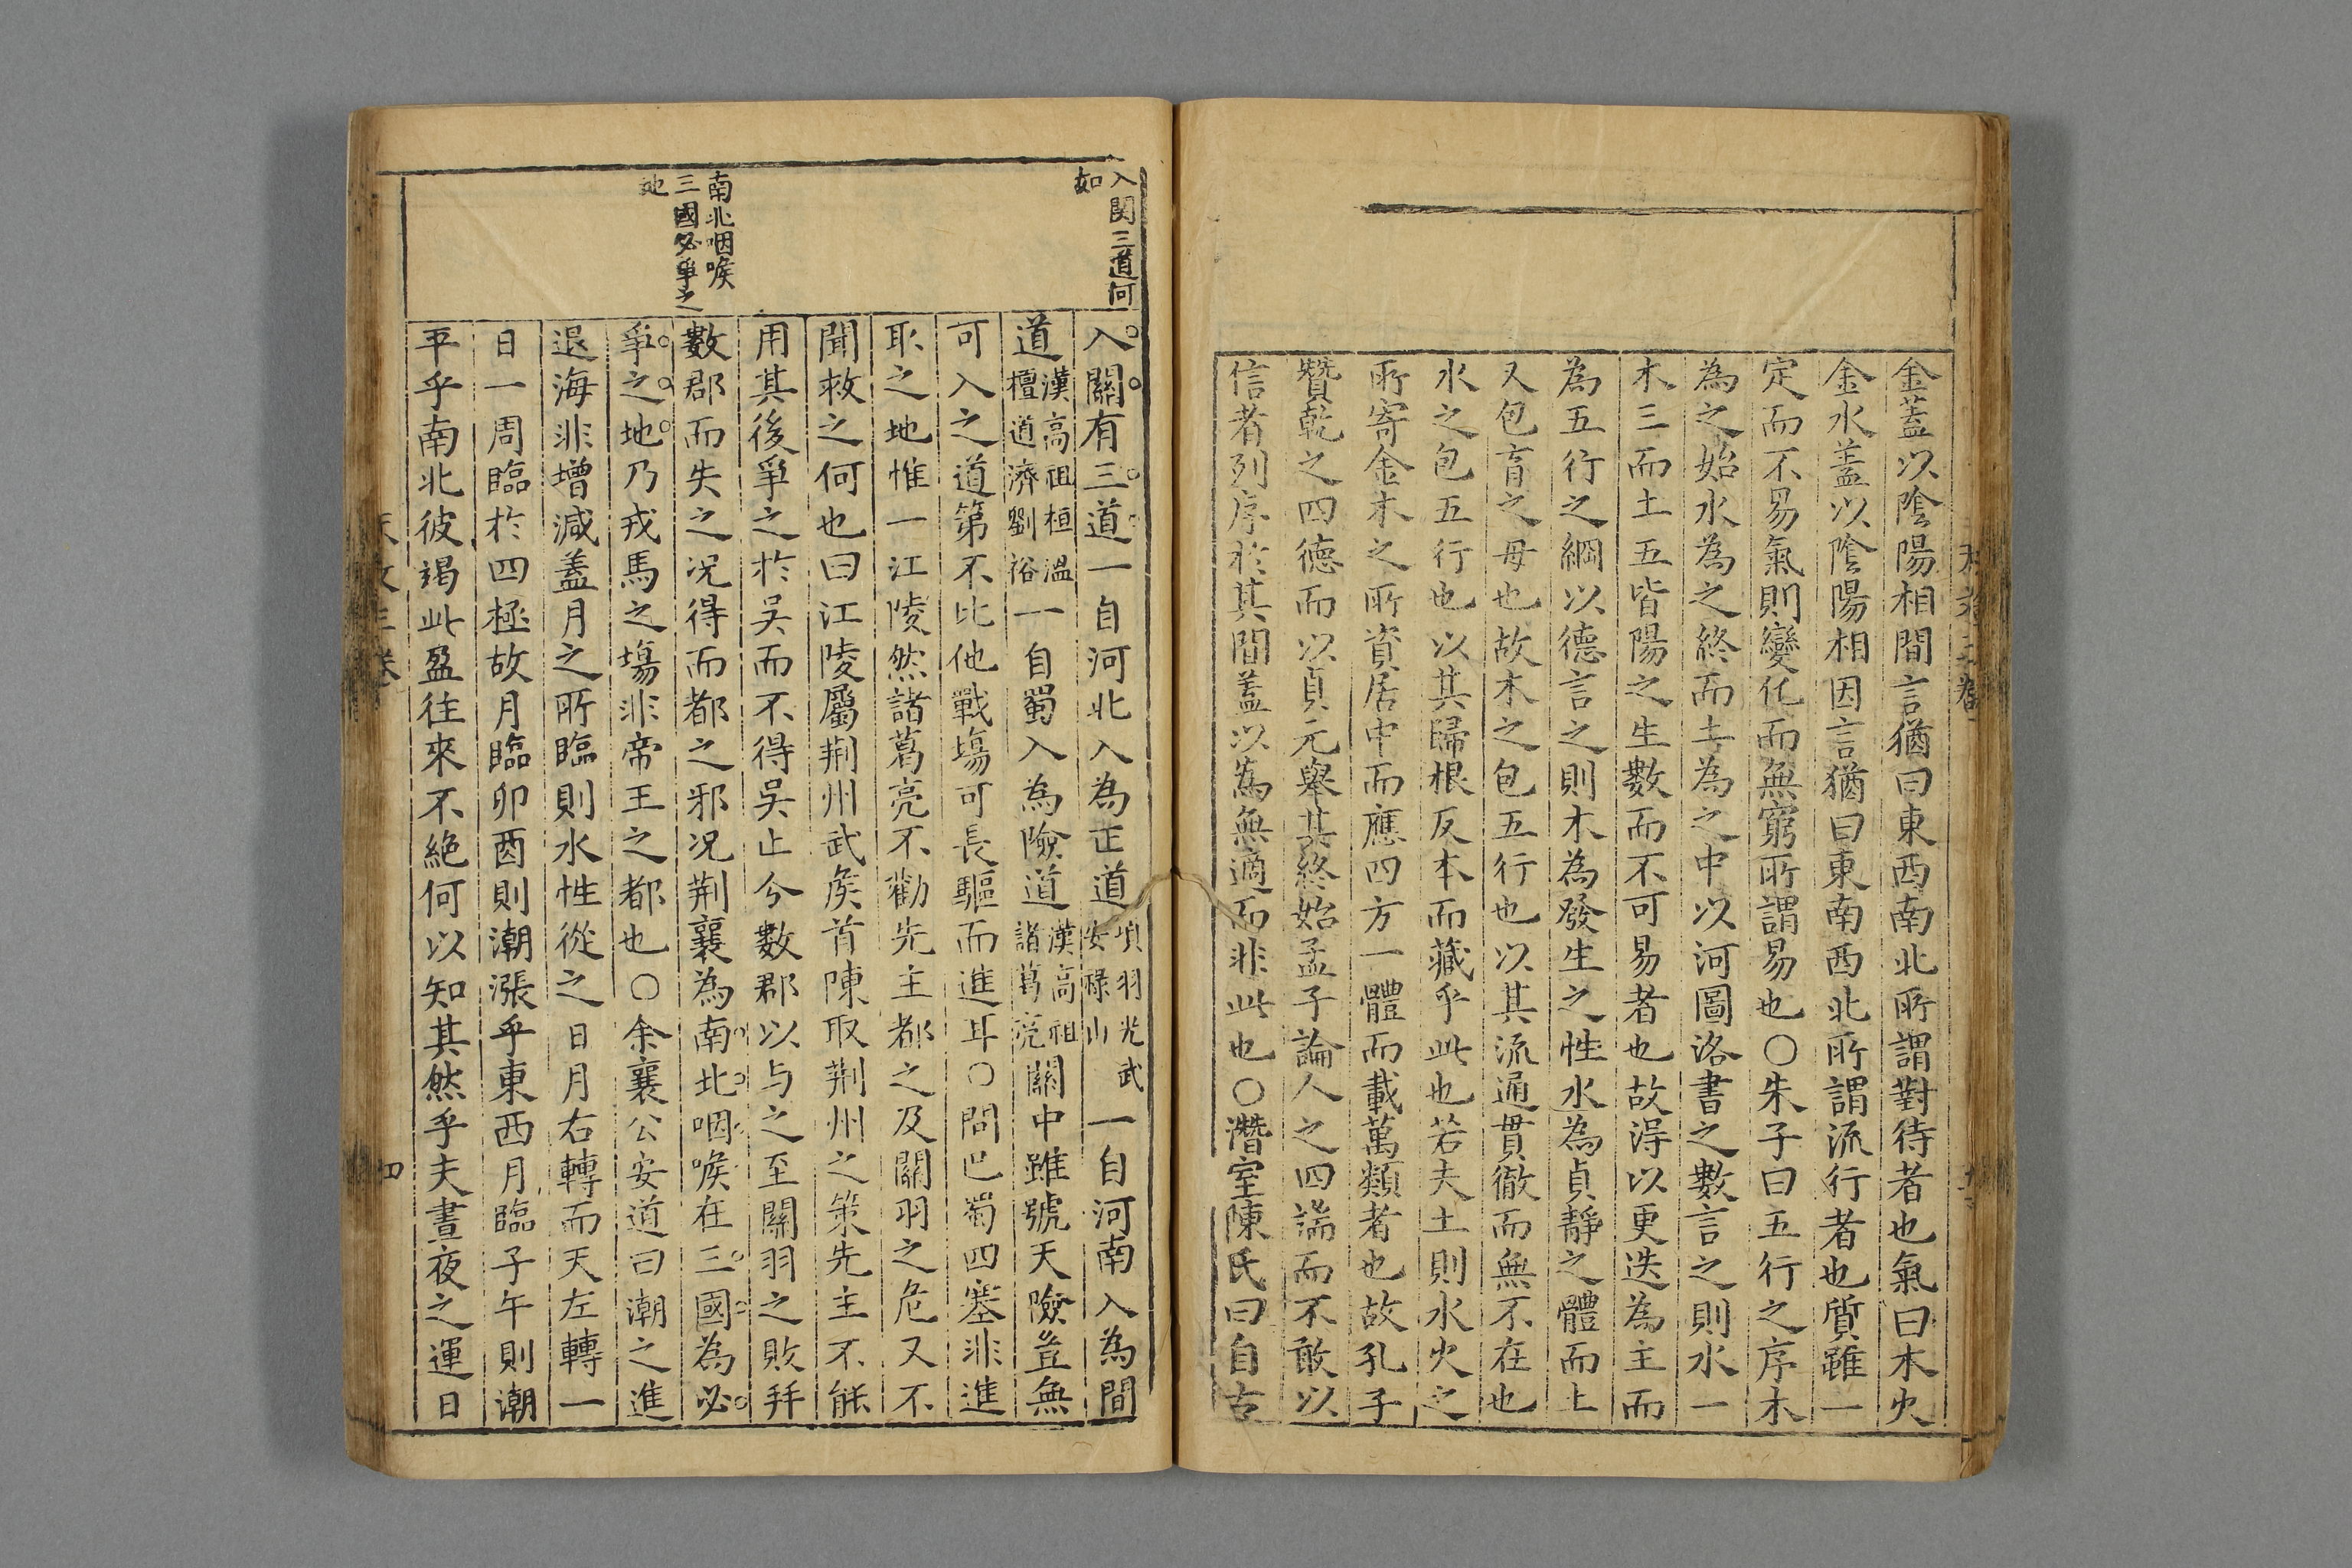 金蓋以陰陽相間言猶曰東西南北所謂對待者也氣曰木火
金水蓋以陰陽相因言猶曰東南西北所謂流行者也質雖一
定而不易氣則變化而無窮所謂易也○朱子曰五行之序木
為之始水為之終而土為之中以河圖洛書之數言之則水一
木三而土五皆陽之生數而不可易者也故淂以更迭為主而
為五行之綱以德言之則木為發生之性水為貞靜之體而土
又包育之母也故木之包五行也以其流通貫徹而無不在也
水之包五行也以其歸根反本而藏乎此也若夫土則水火之
所寄金木之所資居中而應四方一體而載萬類者也故孔子
贊乾之四德而以貞元舉其終始孟子論人之四端而不敢以
信者列序於其間蓋以為無適而非此也○潛室陳氏曰自古
入関三道何
如
南北咽喉
三國必爭之
地
入關有三道一自河北入為正道項羽光武
安祿山一自河南入為間
道漢高祖桓溫
檀道濟劉裕一自蜀入為險道漢高祖
諸葛亮關中雖號天險豈無
可入之道第不比他戰塲可長驅而進耳○問巴蜀四塞非進
取之地惟一江陵然諸葛亮不勸先主都之及關羽之危又不
聞救之何也曰江陵屬荆州武侯首陳取荆州之策先主不能
用其後爭之於吳而不得吳止今數郡以与之至關羽之敗拜
數郡而失之况得而都之邪况荆襄為南北咽喉在三國為必
爭之地乃戎馬之塲非帝王之都也○余襄公安道曰潮之進
退海非增減蓋月之所臨則水性從之日月右轉而天左轉一
日一周臨於四極故月臨卯酉則潮漲乎東西月臨子午則潮
平乎南北彼竭此盈往來不絶何以知其然乎夫晝夜之運日
四